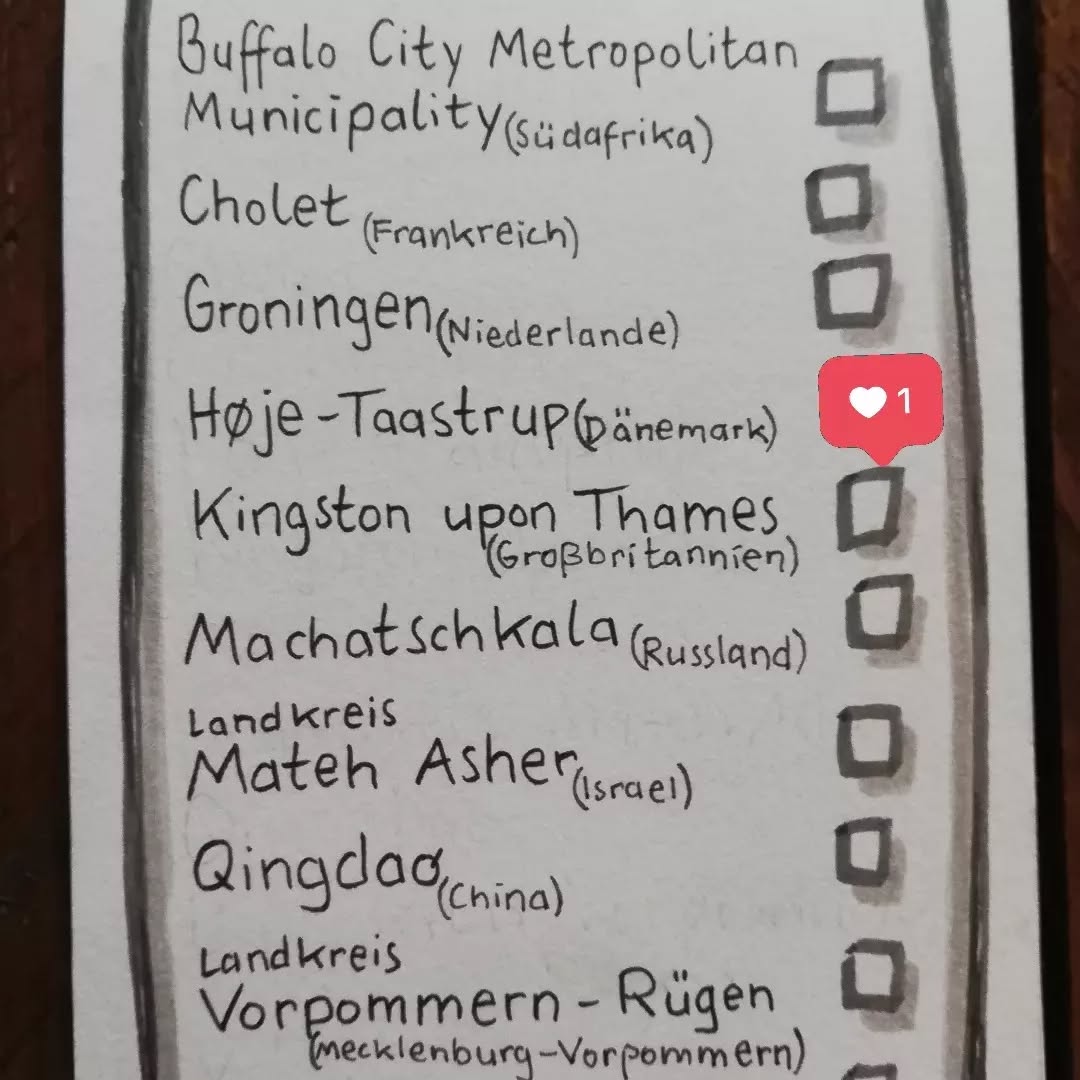 Buffalo City Metropolitan
Municipality (Südafrika)
Cholet (Frankreich)
Groningen (Niederlande)
1
Høje-Taastrup (Dänemark)
Kingston upon Thames
(Großbritannien)
Machatschkala (Russland)
Landkreis
Mateh Asher (Israel)
Qingdao (China)
Landkreis
Vorpommern-Rügen
(Mecklenburg-Vorpommern)